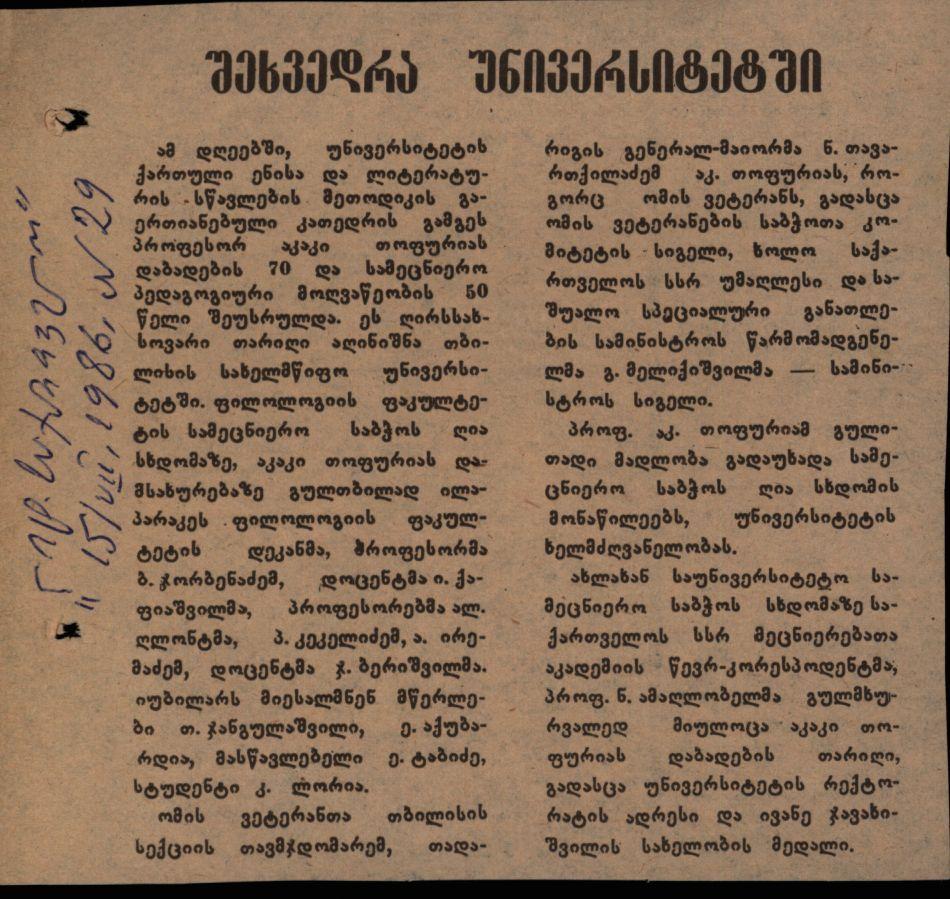 შეხვედრა უნივერსიტეტში
ამ დღეებში, უნივერსიტეტის
ქართული ენისა და ლიტერატუ-
რის სწავლების მეთოდიკის გა-
ერთიანებული კათედრის გამგეს
პროფესორ აკაკი თოფურიას
დაბადების 70 და სამეცნიერო
პედაგოგიური მოღვაწეობის 50
წელი შეუსრულდა. ეს ღირსსახ-
სოვარი თარიღი აღინიშნა თბი-
ლისის სახელმწიფო უნივერსი-
ტეტში. ფილოლოგიის ფაკულტე-
ტის სამეცნიერო საბჭოს ღია
სხდომაზე, აკაკი თოფურიას და-
მსახურებაზე გულთბილად ილა-
პარაკეს ფილოლოგიის ფაკულ-
ტეტის დეკანმა, პროფესორმა
ბ. ჯორბენაძემ, დოცენტმა ი. ქა-
ფიაშვილმა, პროფესორებმა ალ.
ღლონტმა, პ. კეკელიძემ, ა. ირე-
მაძემ, დოცენტმა ჯ. ბერიშვილმა.
იუბილარს მიესალმნენ მწერლე-
ბი თ. ჯანგულაშვილი, ე. აქუბა-
რდია, მასწავლებელი ე. ტაბიძე,
სტუდენტი კ. ლორია.
ომის ვეტერანთა თბილისის
სექციის თავმჯდომარემ, თადა-
რიგის გენერალ-მაიორმა ნ. თავა-
რთქილაძემ აკ. თოფურიას, რო-
გორც ომის ვეტერანს, გადასცა
ომის ვეტერანების საბჭოთა კო-
მიტეტის სიგელი, ხოლო საქა-
რთველოს სსრ უმაღლესი და სა-
შუალო სპეციალური განათლე-
ბის სამინისტროს წარმომადგენე-
ლმა გ. მელიქიშვილმა — სამინი-
სტროს სიგელი.
პროფ. აკ. თოფურიამ გული-
თადი მადლობა გადაუხადა სამე-
ცნიერო საბჭოს ღია სხდომის
მონაწილეებს, უნივერსიტეტის
ხელმძღვანელობას.
ახლახან საუნივერსიტეტო სა-
მეცნიერო საბჭოს სხდომაზე სა-
ქართველოს სსრ მეცნიერებათა
აკადემიის წევრ-კორესპოდენტმა,
პროფ. ნ. ამაღლობელმა გულმხუ-
რვალედ მიულოცა აკაკი თო-
ფურიას დაბადების თარიღი,
გადასცა უნივერსიტეტის რექტო-
რატის ადრესი და ივანე ჯავახი-
შვილის სახელობის მედალი.
15/VII, 1986, N 29